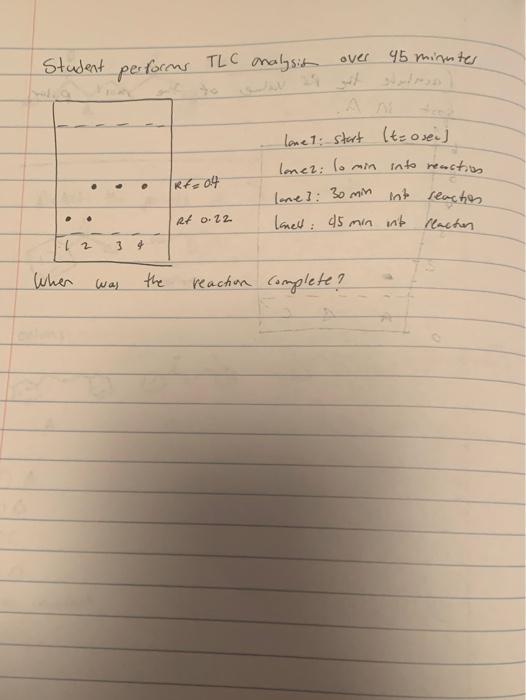 Student performs TLC analysis over 45 minutes
lane 1: start (t=0 sec)
lane 2: 10 min into reaction
Rf = 04
lane 3: 30 min into reaction
Rf 0.22
lane 4: 45 min into reaction
1 2 3 4
When was the reaction complete?